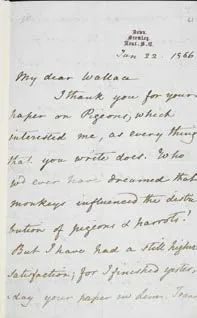 Down.
Bromley.
Kent. S.E.
Jan 22. 1866
My dear Wallace
I thank you for your
paper on Pigeons, which
interested me, as every thing
that you write does. Who
wd ever have dreamed that
monkeys influenced the distri
bution of pigeons & parrots!
But I have had a still higher
satisfaction; for I finished yester
day your paper in Linn. Trans